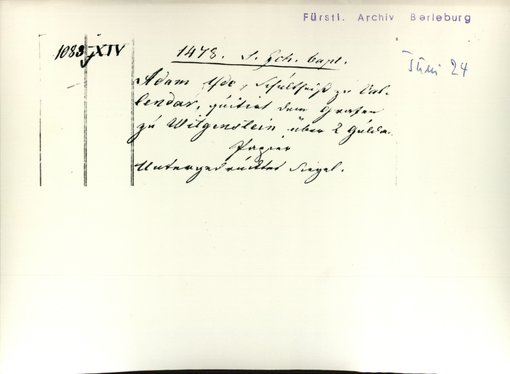 Fürstl. Archiv Berleburg
1083 XIV
1478. S. Joh. bapt.
Juni 24
Adam, Schultheiß zu Val-
lendar, quitirt dem Grafen
zu Witgenstein über 2 Gulden
Papier
Untergedrücktes Siegel.